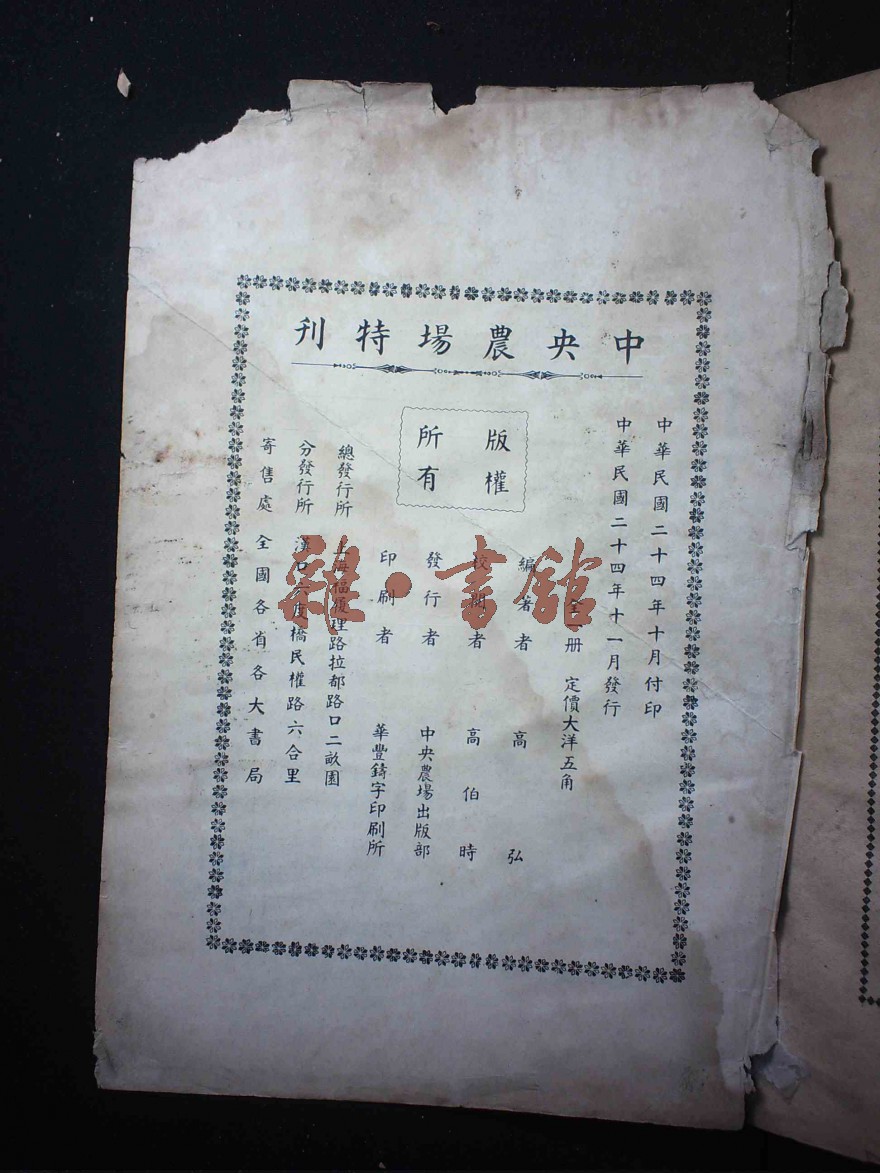 中央農場特刊
中華民國二十四年十月付印
中華民國二十四年十一月發行
全一册 定價大洋五角
版權所有
編著者 高弘
校閱者 高伯時
發行者 中央農場出版部
印刷者 華豐鑄字印刷所
總發行所 上海福履理路拉都路口二畝園
分發行所 漢口六度橋民權路六合里
寄售處 全國各省各大書局
雜·書館